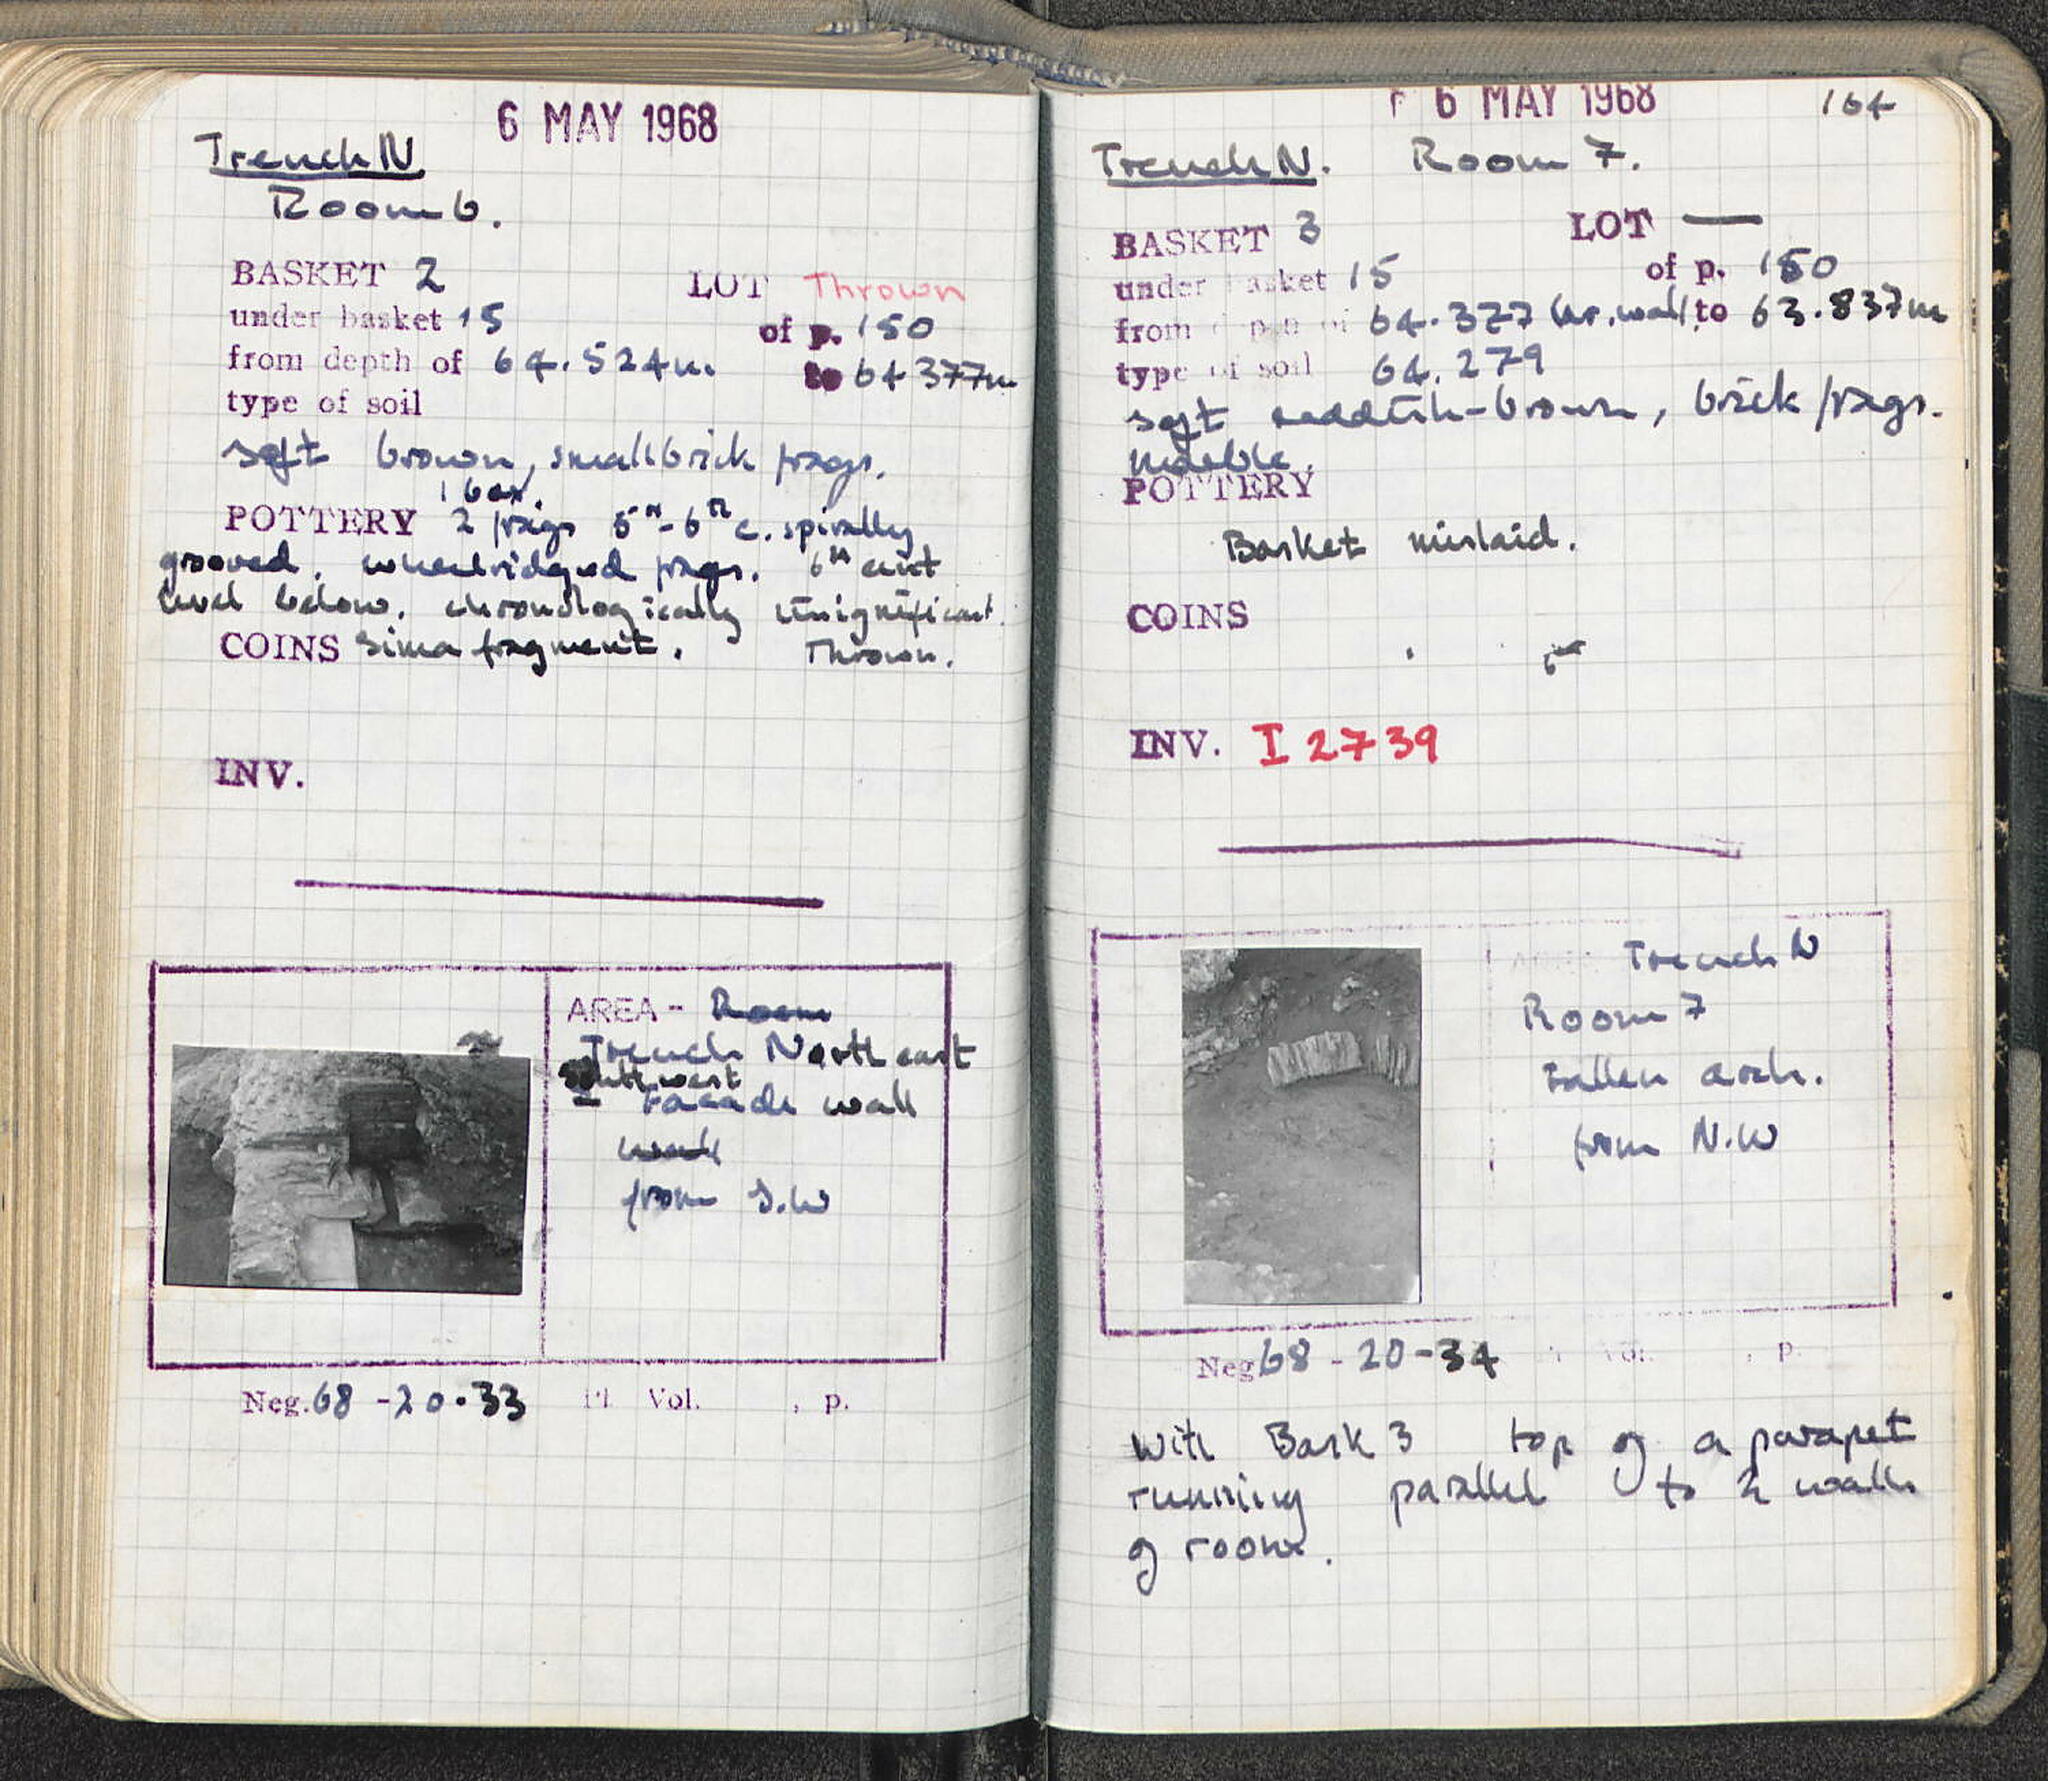 6 MAY 1968
Trench N
Room 6.
BASKET 2 LOT Thrown
under basket 15 of p. 150
from depth of 64.524m. to 64 377m
type of soil
soft brown, small brick frags.
1 box.
POTTERY 2 frags 5th-6th c. spirally
grooved, wheelridged frags. 6th cent
level below. chronologically insignificant.
COINS Sima fragment. Thrown.
INV.
AREA - Room
Trench Northeast
South west
Facade wall
from S.W
Neg. 68 - 20 - 33 Pl Vol. , p.
6 MAY 1968 164
Trench N. Room 7.
BASKET 3 LOT —
under basket 15 of p. 150
from depth of 64.377 (ar. wall) to 63.837m
type of soil 64.279
soft reddish-brown, brick frags.
marble.
POTTERY
Basket mislaid.
COINS
INV. I 2739
AREA Trench N
Room 7
Fallen arch.
from N.W
Neg 68 - 20 - 34 Vol. , p.
With Bask 3 top of a parapet
running parallel to 2 walls
of room.